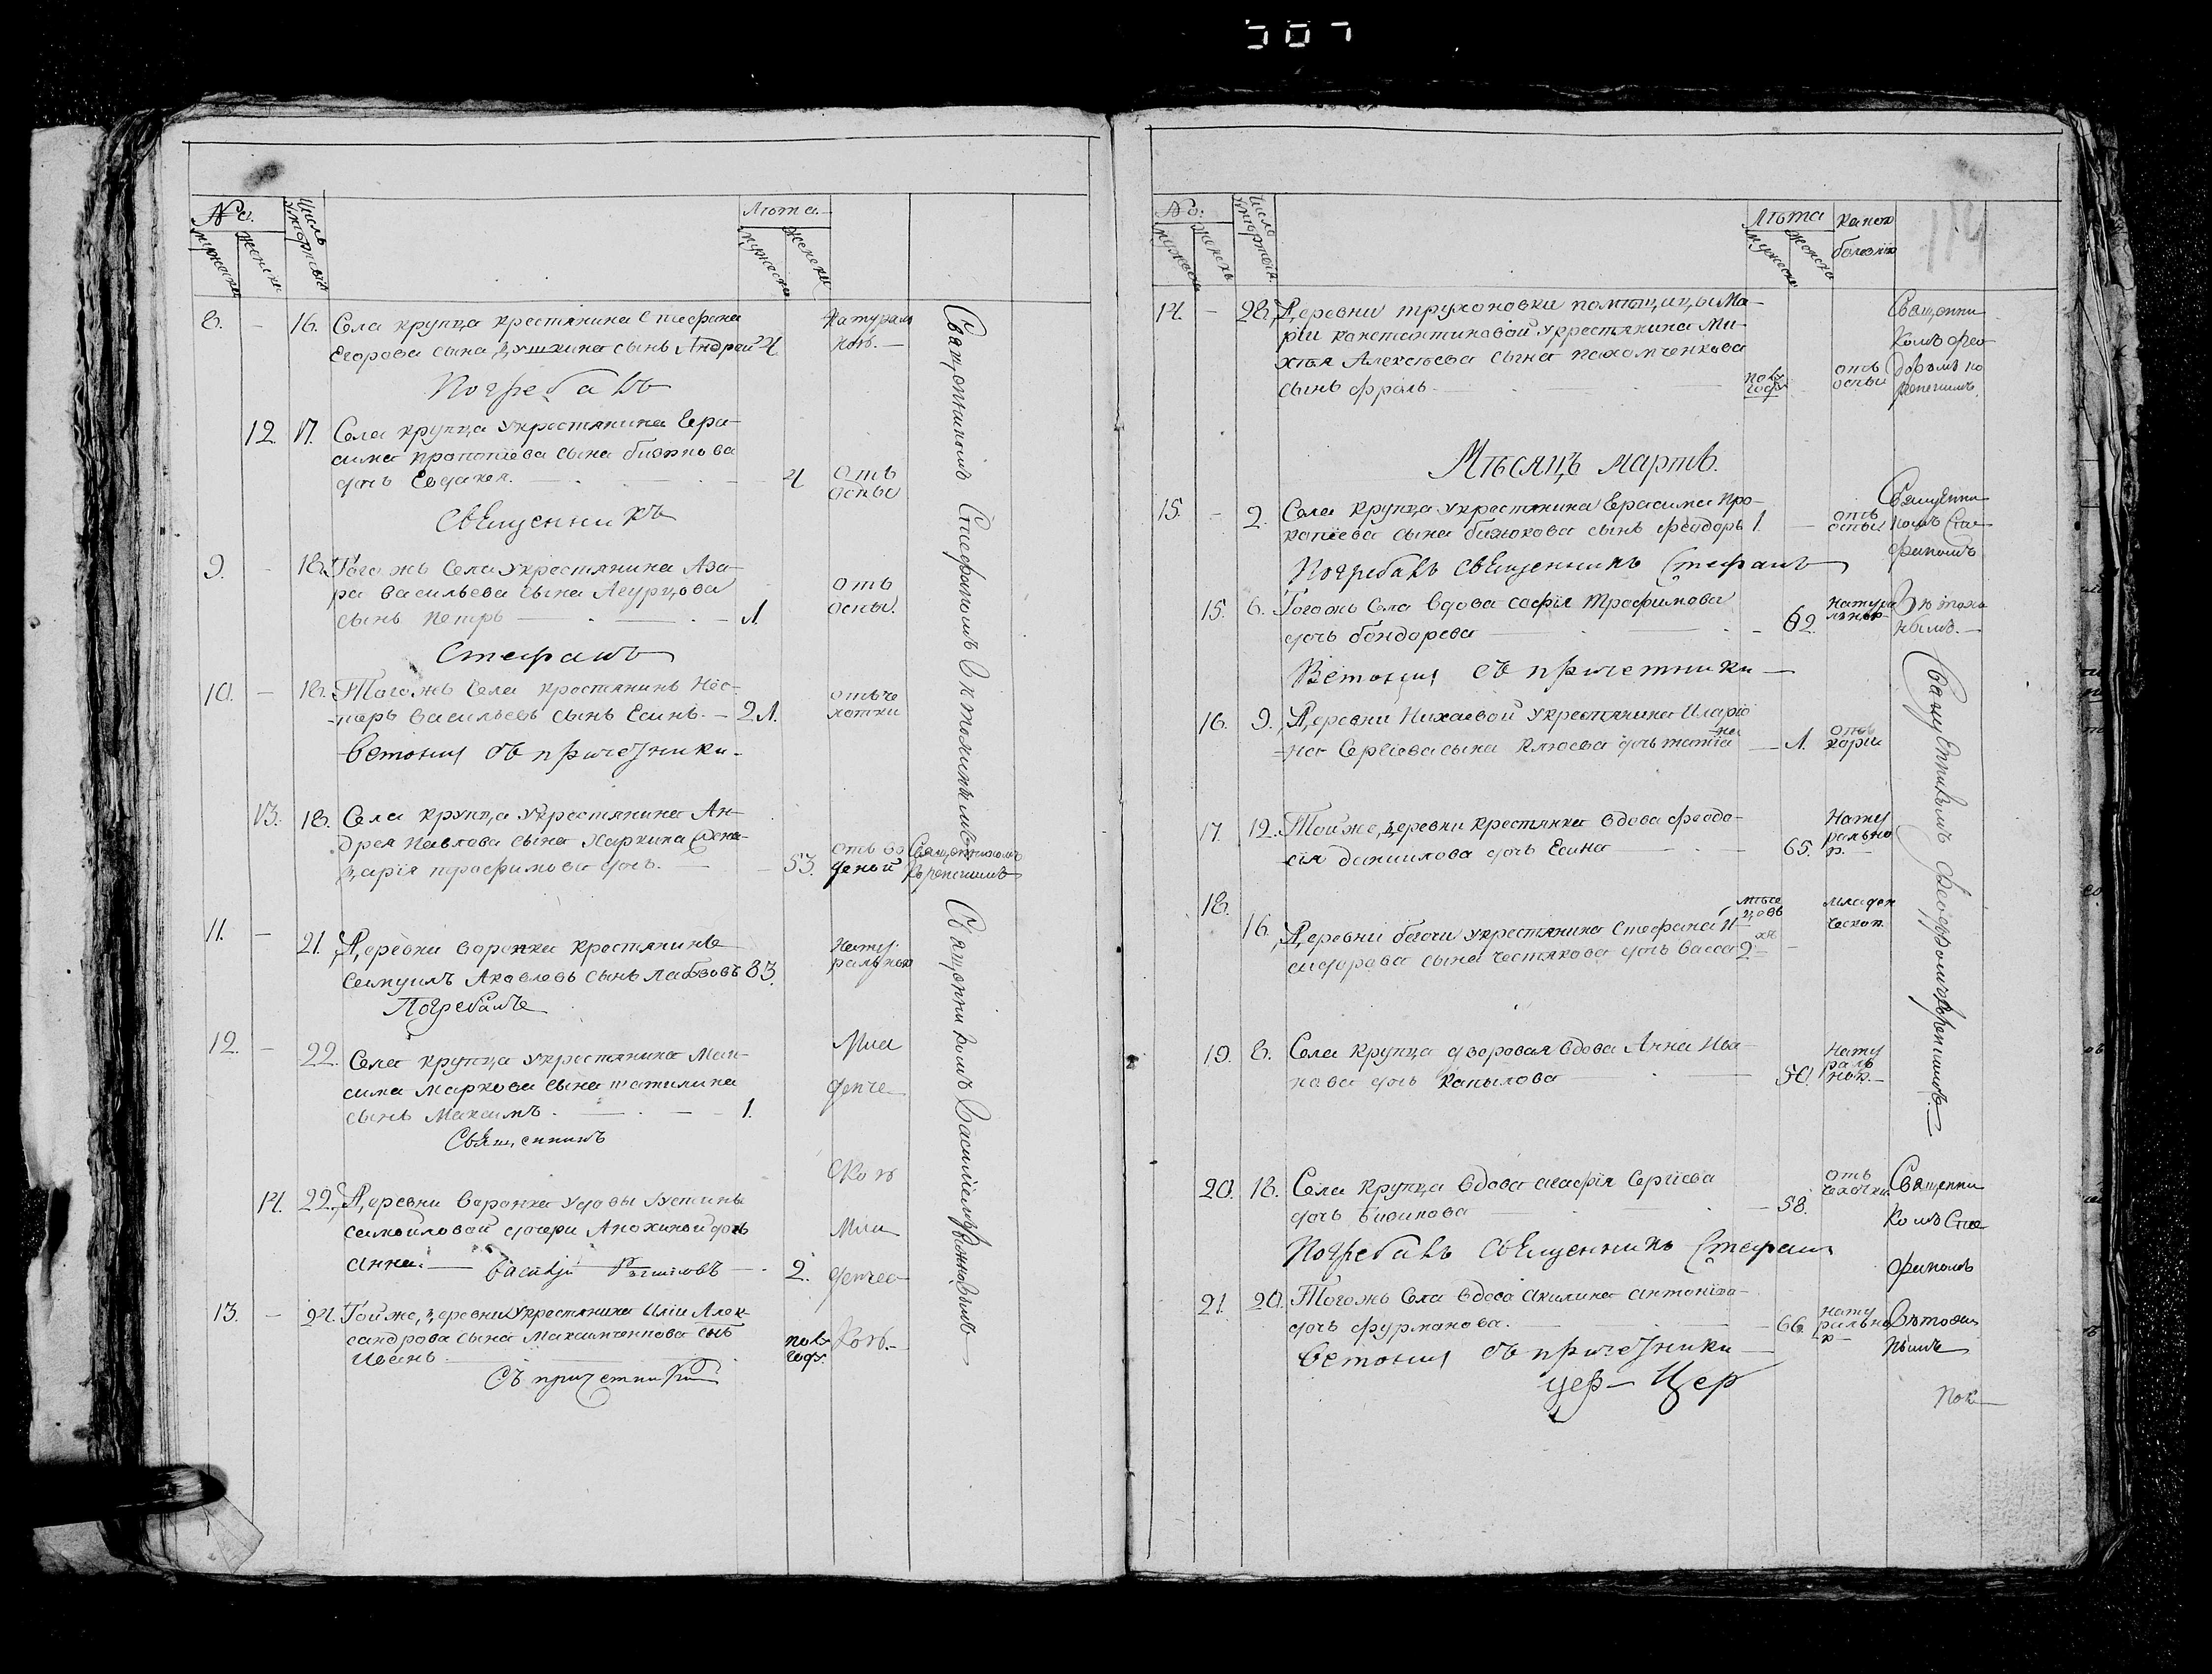 507
No.
мужески
женски
Число умертвія
Лѣта
мужески
женски
8. - 16. Села крупца крестянина Стефана
Егорова сына душкина сынъ Андрей 4. Натураль
ною.
Погребалъ
12. 17. Села крупца укрестянина Гера-
сима прокопіева сына бизюкова
дочь Евдокея. 4 отъ
оспы
Священникъ
9. - 18. Тогожъ Села укрестянина Аза-
ра васильева сына Агурцова
сынъ петръ 1. отъ
оспы.
Стефанъ
10. - 18. Тогожъ Села крестянинъ Нес-
теръ васильевъ сынъ Есинъ. 21. отъ че
хотки
Ветония съ причетники
13. 18. Села крупца укрестянина Ан-
дрея павлова сына Харкина жена
дарія трофимова дочь. 53. отъ во
деной
Священникомъ
11. - 21. Деревни воронки крестянинъ
самуилъ Яковлевъ сынъ 83. Нату
ральною
Погребалъ
12. - 22. Села крупца укрестянина Мак-
сима маркова сына шатилина
сынъ Максимъ. 1. Мла
денче
Священникъ
скою
14. 22. Деревни воронка удовы Устиньи
самойловой дочери Анохиной дочь
анна. 2. Мла
денчес
василій
13. - 24. Тойже деревни укрестянина Иліи Алек-
сандрова сына Максимченкова сынъ
Иванъ пол
года кою.
Съ причетники
Священникомъ Стефаномъ Вѣтохинымъ
Священникомъ Василіемъ
No.
мужески
женскъ
Число умертвія.
Лѣта
мужеска
женска
какою
болезнію
114
14. - 28. Деревни трухоновки помѣщицы Ма-
ріи константиновой укрестянина Ми-
хѣя Алексѣева сына пахомченкова
сынъ фролъ. пол
года отъ
оспы
Священни
комъ Фео
доромъ
Мѣсяцъ мартъ.
15. - 2. Села крупца укрестянина Герасима про-
копіева сына бизюкова сынъ феодоръ 1. отъ
оспы
Священни
комъ Сте
фаномъ
Погребалъ священникъ Стефанъ
15. 6. Тогожъ Села вдова софія Трофимова
дочь бондарева 62. натура
льною
Вѣтохи
нымъ.
Ветония съ причетники
16. 9. Деревни Нихаевой укрестянина Иларіо
на Сергіева сына Клюева дочь татіа
на 1. отъ
кории
17. 12. Тойже деревни крестянка вдова феодо-
сія данилова дочь Есина 65. Нату
рально
ю.
18. 16. Деревни басчи укрестянина Стефана И-
сидорова сына честякова дочь васса 2 мѣся
цовъ
младен
ческою.
19. 8. Села крупца дворовая вдова Анна Ива-
нова дочь Капылова 50. Нату
раль
ною.
Священникомъ
20. 18. Села крупца вдова агафія Сергіева
дочь 58. отъ
чахотки
Священни
комъ Сте
фаномъ
Погребалъ священникъ Стефанъ
21. 20. Тогожъ Села вдова акилина антонова
дочь фурманова. 66. нату
рально
ю
Вѣтохи
нымъ
Ветония съ причетники
цер- Цер
Пок